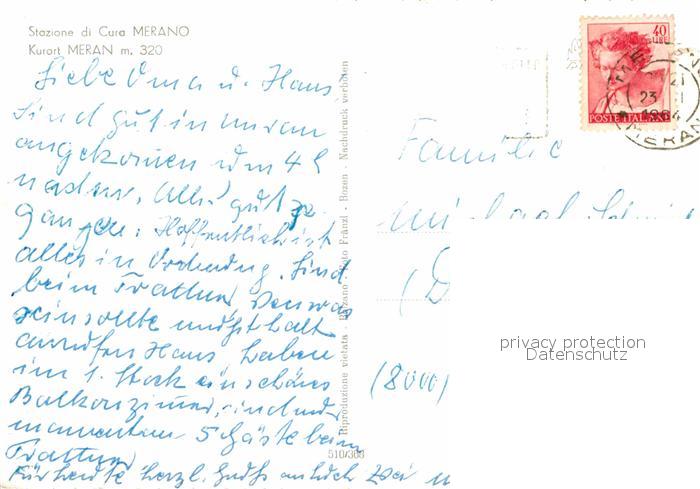 Stazione di Cura MERANO
Kurort MERAN m. 320
Liebe Oma u. Hans
Sind gut in meran
angekomen um 4 h
nachm. Alles gut ge
gangen. Hoffentlich ist
alles in Ordnung. Sind
beim Trattner, wenn was
sein sollte müßt halt
anrufen Hans haben
im 1. Stock ein schönes
Balkonzimer, sind nur
momentan 5 Gäste beim
Trattner
Für heute herzl. Grüße an dich
Riproduzione vietata - Bolzano - Foto Fränzl - Bozen - Nachdruck verboten
510/303
40
LIRE
POSTE ITALIANE
23
1964
MERANO
Familie
(8000)
privacy protection
Datenschutz